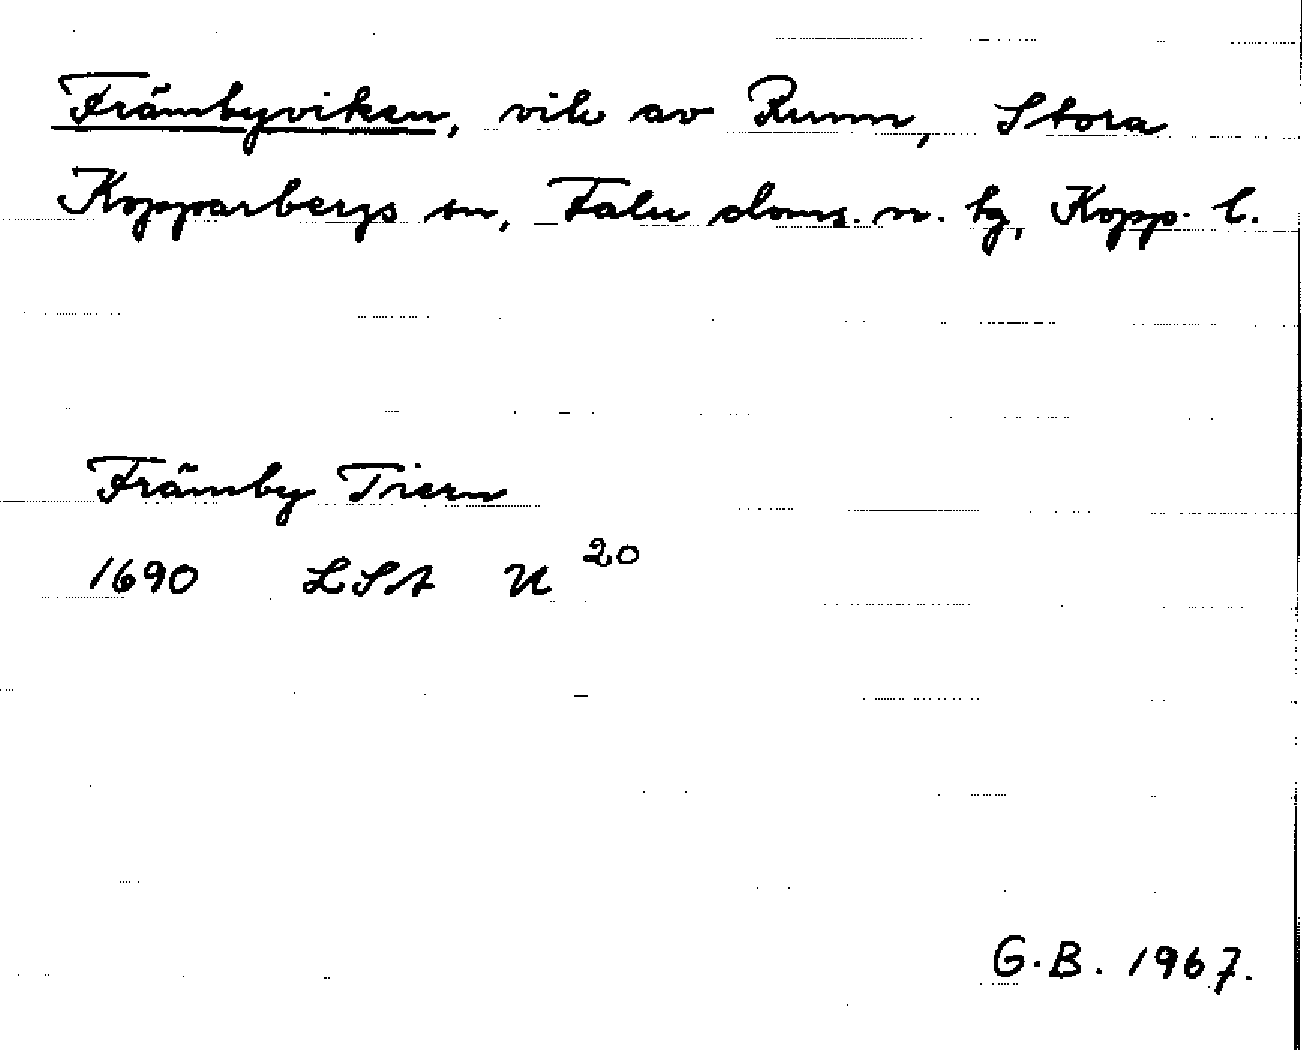 Främbyviken, vik av Runn, Stora
Kopparbergs sn, Falu doms. n. tg, Kopp. l.
Främby Tiern
1690 LSA U 20
G.B. 1967.